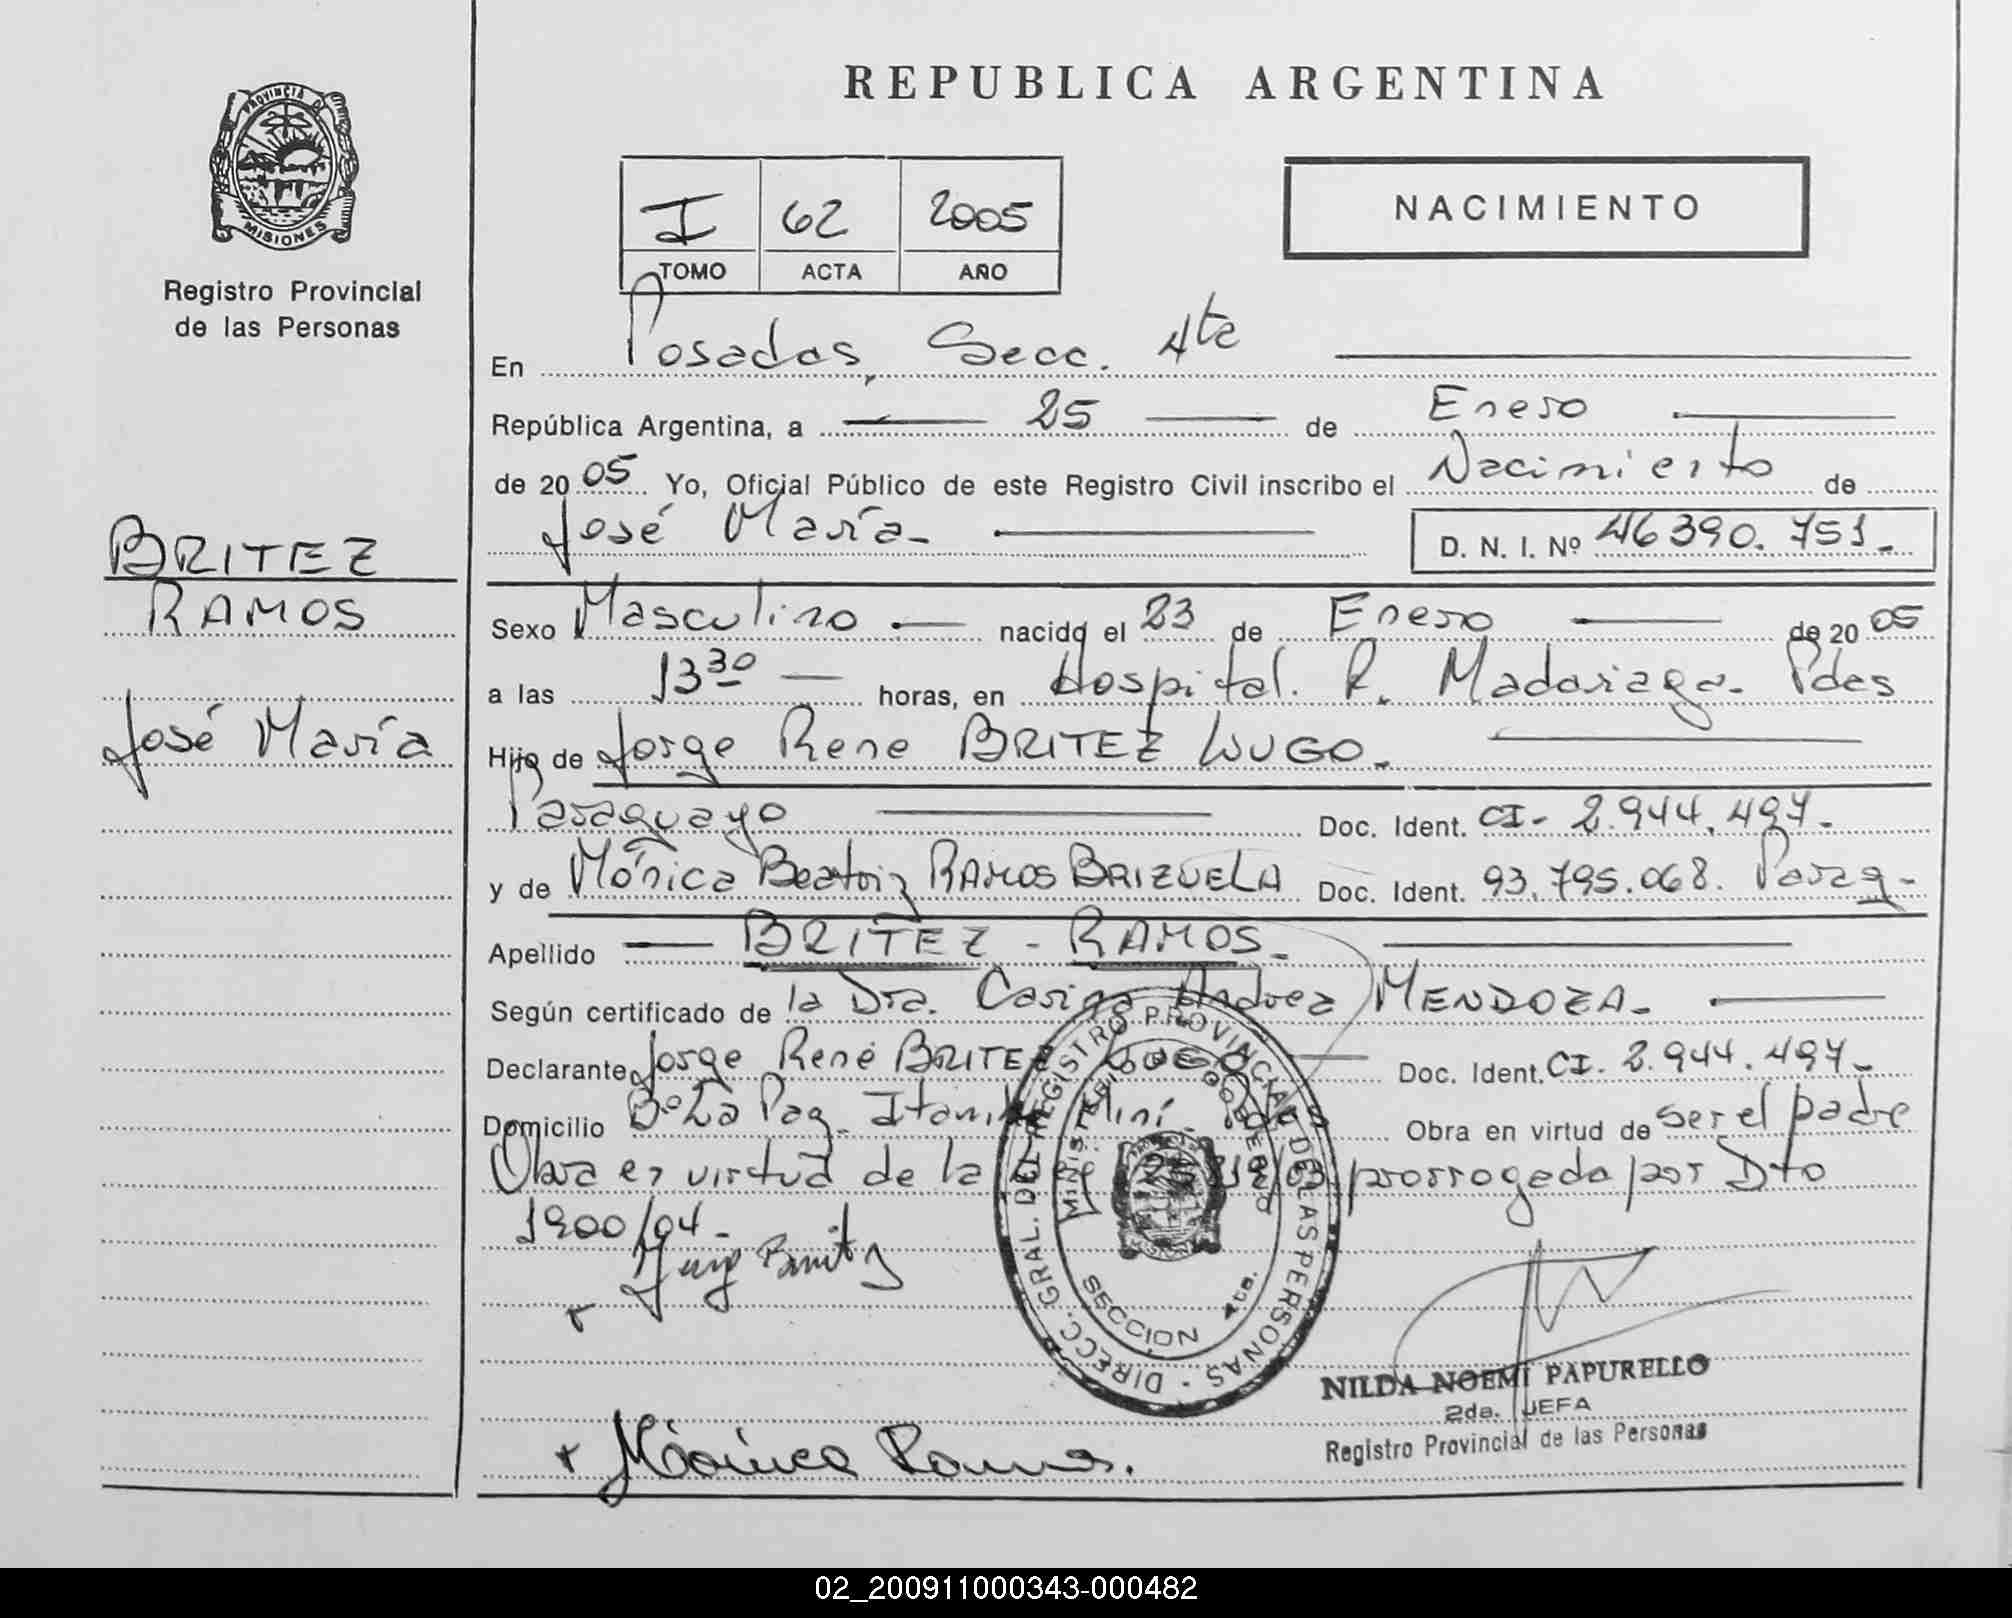 REPUBLICA ARGENTINA
PROVINCIA DE
MISIONES
Registro Provincial
de las Personas
I 62 2005
TOMO ACTA AÑO
NACIMIENTO
En Posadas, Secc. 4ta
República Argentina, a 25 de Enero
de 2005 Yo, Oficial Público de este Registro Civil inscribo el Nacimiento de
José María- D. N. I. Nº 46390.751.-
BRITEZ
RAMOS
José María
Sexo Masculino nacido el 23 de Enero de 2005
a las 13 30 horas, en Hospital. R. Madariaga- Pdas
Hijo de Jorge Rene BRITEZ LUGO.-
Paraguayo Doc. Ident. CI- 2.944.497.-
y de Mónica Beatriz RAMOS BRIZUELA Doc. Ident. 93.795.068. Parag-
Apellido BRITEZ - RAMOS-
Según certificado de la Dra. Carina Andrea MENDOZA-
Declarante Jorge René BRITEZ LUGO Doc. Ident. CI. 2.944.497-
Domicilio Bº La Paz- Itambé Miní. Pdas Obra en virtud de ser el padre
Obra en virtud de la Ley 25819/03 prorrogada por Dto
1900/04-
DIRECC. GRAL. DEL REGISTRO PROVINCIAL DE LAS PERSONAS -
MINISTERIO DE GOBIERNO
SECCION 4ta.
NILDA NOEMI PAPURELLO
2da. JEFA
Registro Provincial de las Personas
Mónica Ramos.
02_200911000343-000482